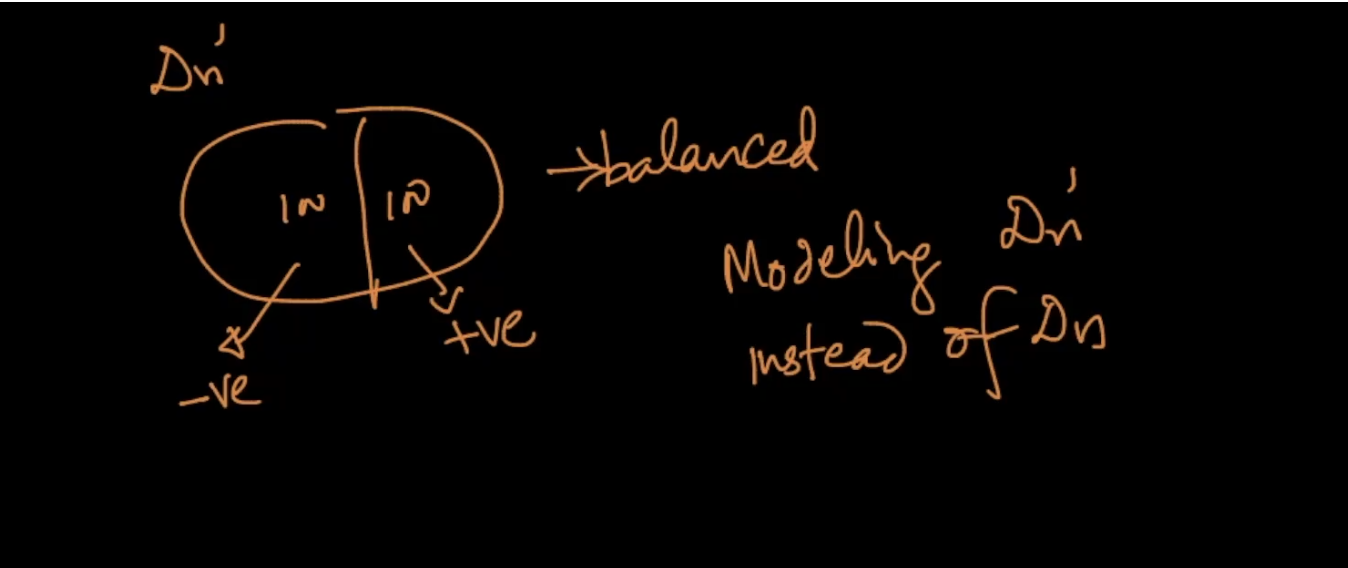 Dn'
1N 1N
→balanced
-ve
+ve
Modeling Dn'
instead of Dn